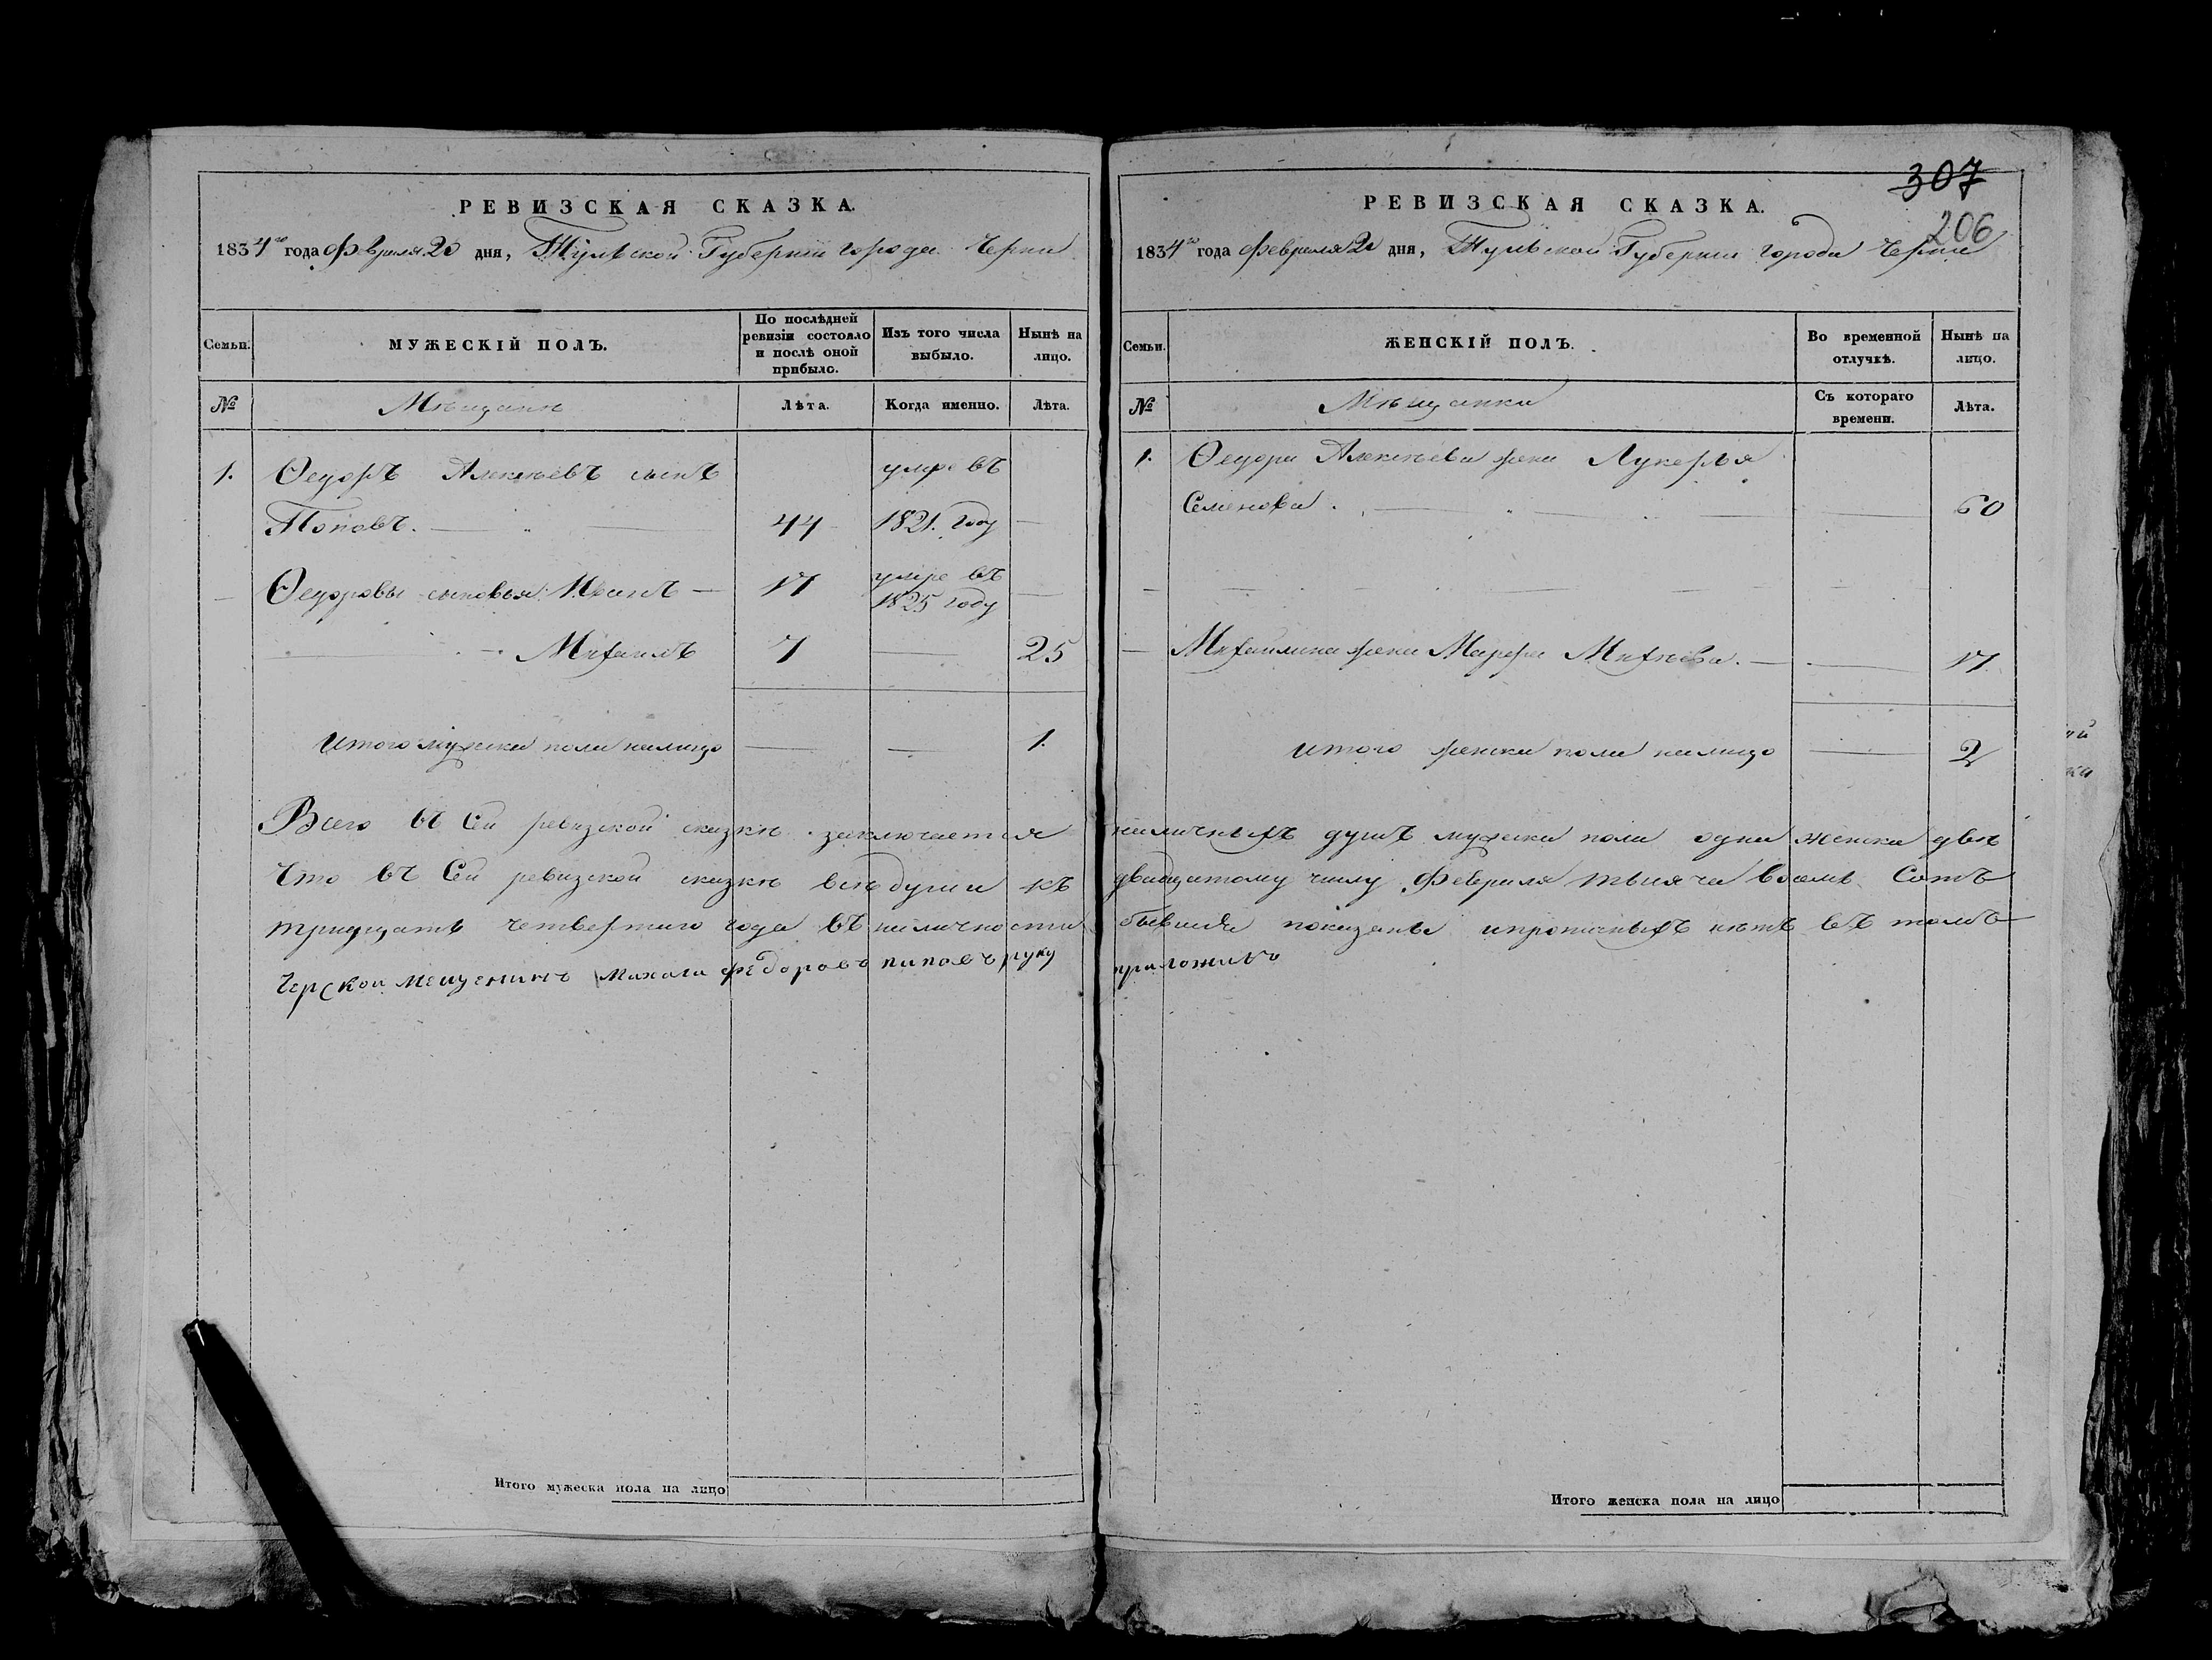 РЕВИЗСКАЯ СКАЗКА.
1834го года Февраля 20 дня, Тульской Губернии города Черни
Семьи.
МУЖЕСКІЙ ПОЛЪ.
По послѣдней ревизіи состояло и послѣ оной прибыло.
Изъ того числа выбыло.
Нынѣ на лицо.
№
Мѣщане
Лѣта.
Когда именно.
Лѣта.
1. Ѳедоръ Алексѣевъ сынъ умре въ
Поповъ. 44 1821. году
Ѳедоровы сыновья: Иванъ 17 умре въ 1825 году
Михаилъ 7 25
Итого мужеска пола налицо 1.
Всего въ Сей ревизской сказкѣ заключается
Что въ Сей ревизской сказкѣ всѣ души къ
тридцать четвертаго года въ наличности
Черской мещенинъ Михаила федоровъ паповъ руку
Итого мужеска пола на лицо
307
206
РЕВИЗСКАЯ СКАЗКА.
1834го года Февраля 20 дня, Тульской Губернии города Черни
Семьи.
ЖЕНСКІЙ ПОЛЪ.
Во временной отлучкѣ.
Нынѣ на лицо.
№
Мѣщанки
Съ котораго времени.
Лѣта.
1. Ѳедора Алексѣева жена Лукерья
Семенова. 60
Михаилина жена Марфа Михѣева. 17.
Итого женска пола налицо 2
наличныхъ душъ мужеска пола одна женска двѣ
двадцатому числу Февраля тысяча восемь Сотъ
бывшия показаны ипрописныхъ нѣтъ въ томъ
приложилъ
Итого женска пола на лицо